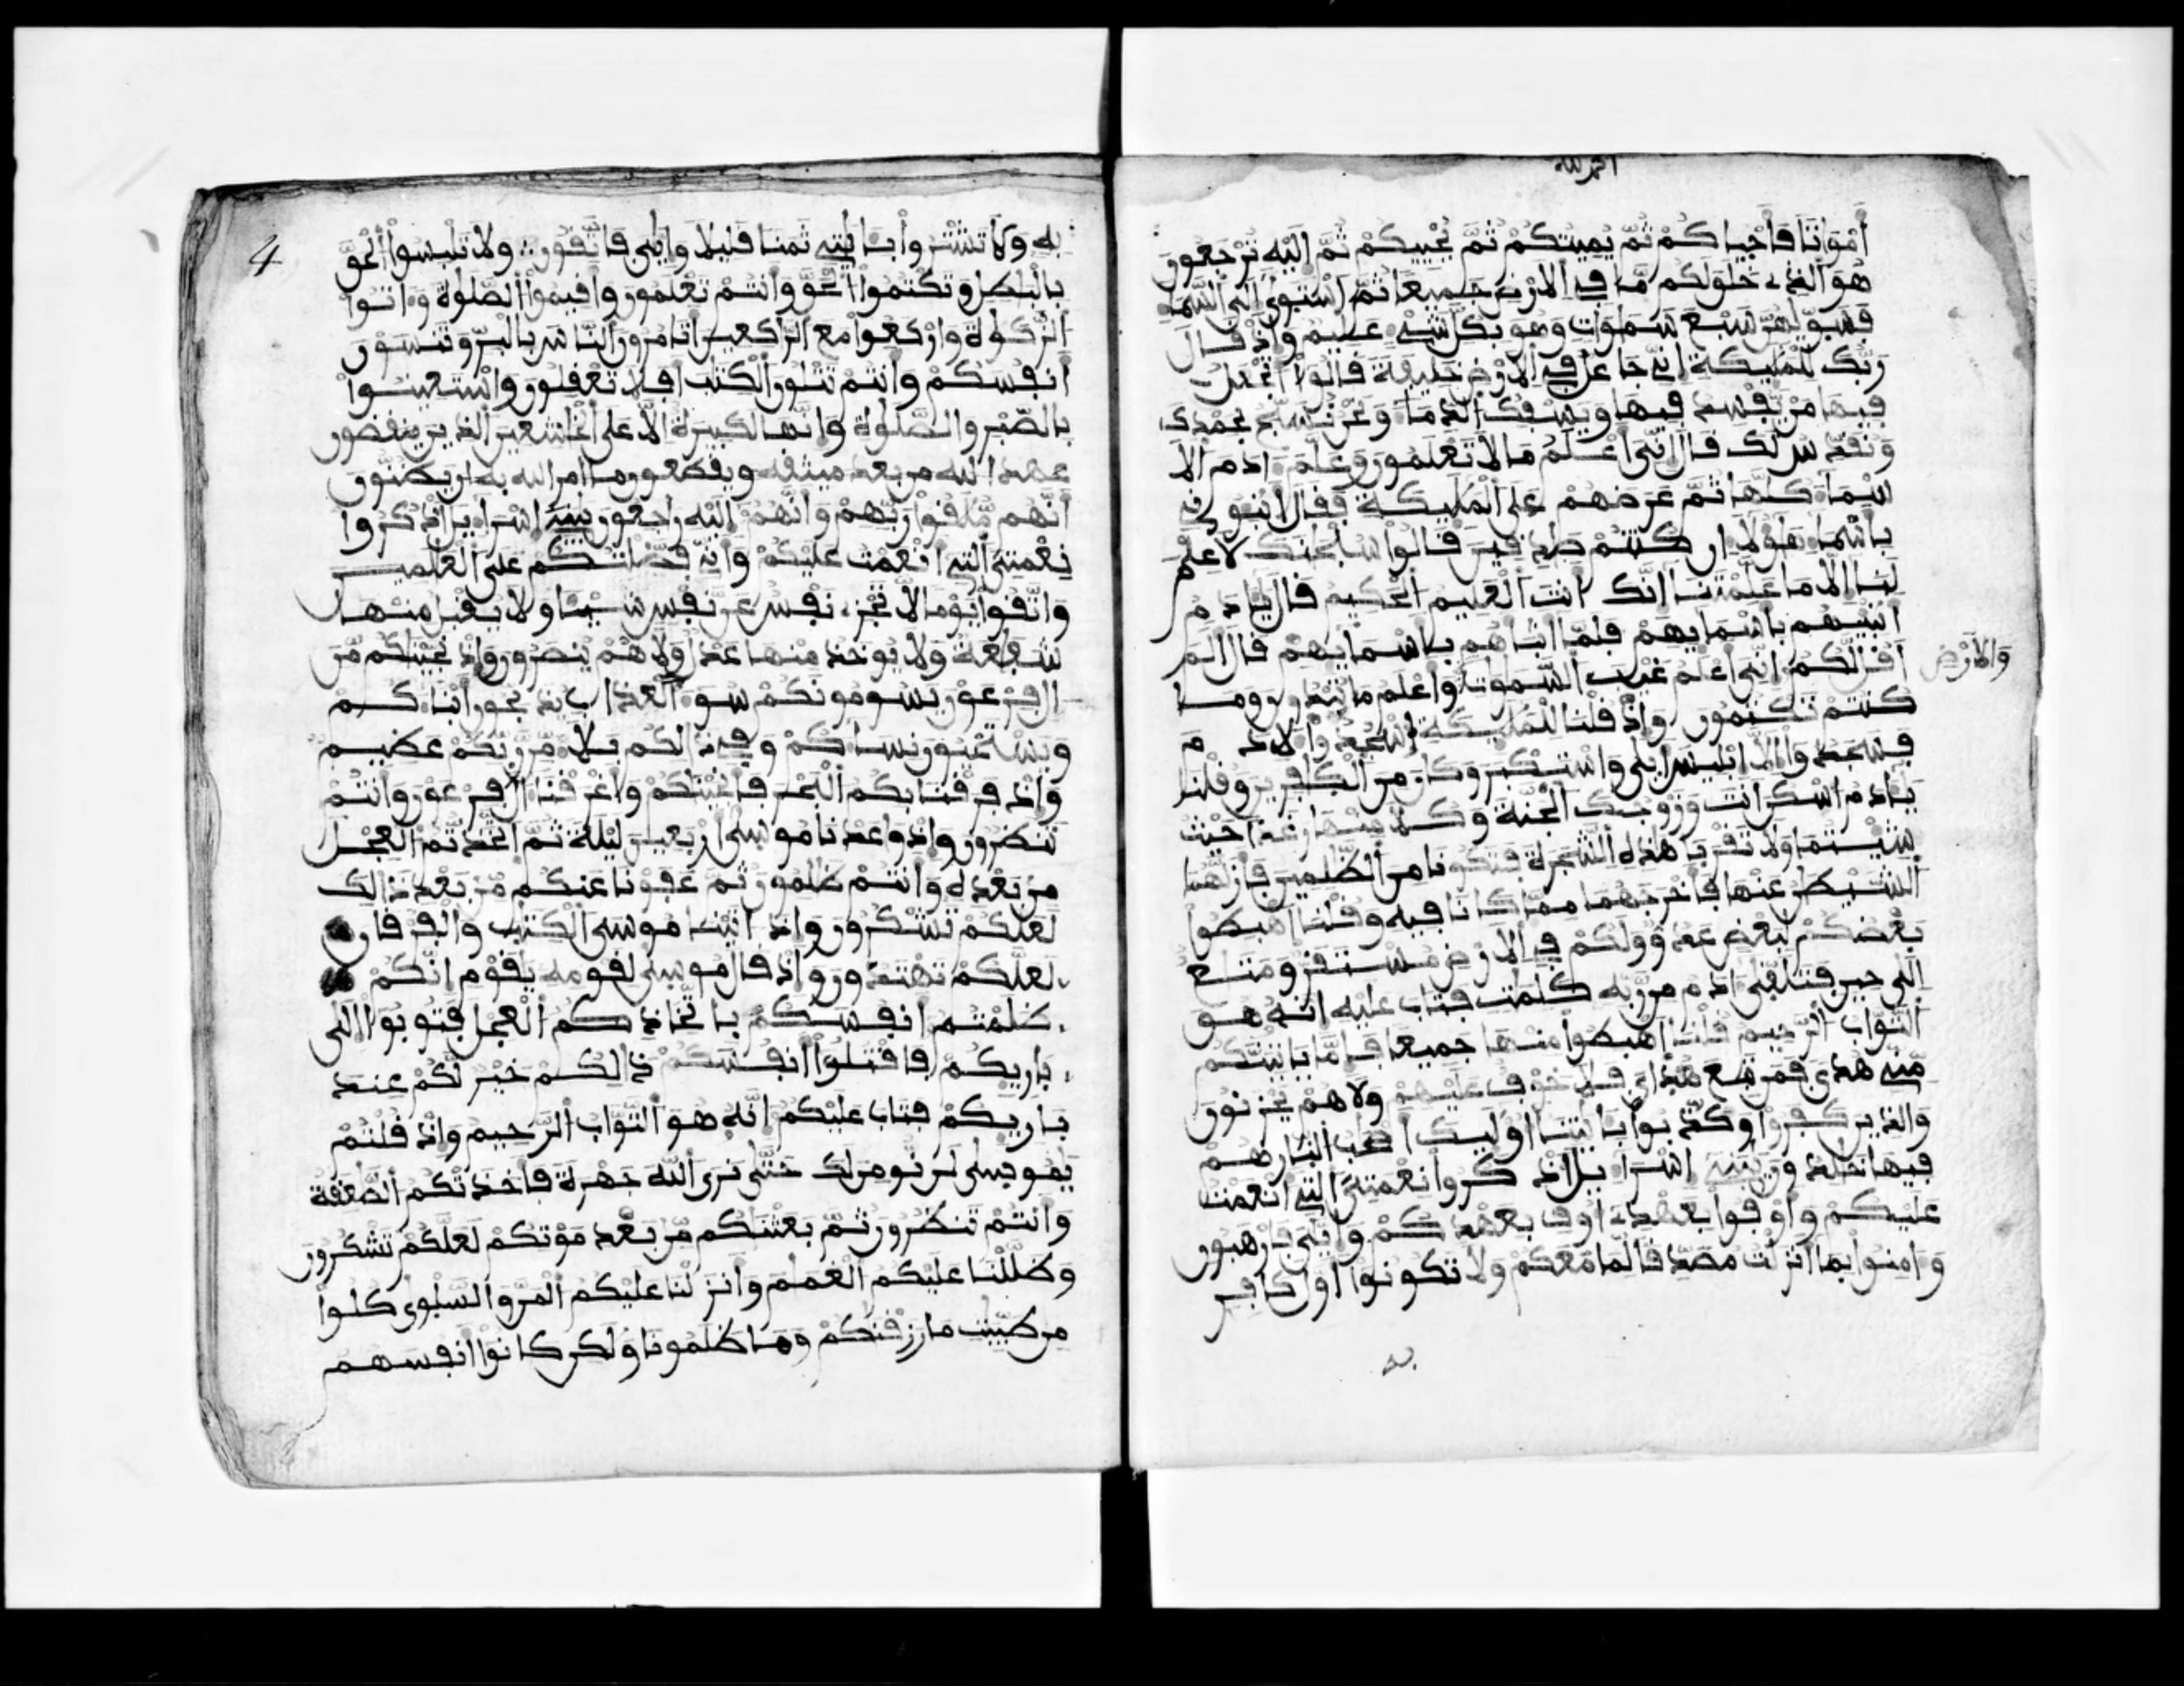 الحمد لله
أَمْوَاتًا فَأَحْيَاكُمْ ثُمَّ يُمِيتُكُمْ ثُمَّ يُحْيِيكُمْ ثُمَّ إِلَيْهِ تُرْجَعُونَ
هُوَ الَّذِي خَلَقَ لَكُم مَّا فِي الْأَرْضِ جَمِيعًا ثُمَّ اسْتَوَىٰ إِلَى السَّمَا
فَسَوَّيٰهُنَّ سَبْعَ سَمَٰوَٰتٍ وَهُوَ بِكُلِّ شَيْءٍ عَلِيمٌ وَإِذْ قَالَ
رَبُّكَ لِلْمَلَٰٓئِكَةِ إِنِّي جَاعِلٌ فِي الْأَرْضِ خَلِيفَةً قَالُوا أَتَجْعَلُ
فِيهَا مَنْ يُفْسِدُ فِيهَا وَيَسْفِكُ الدِّمَاءَ وَنَحْنُ نُسَبِّحُ بِحَمْدِكَ
وَنُقَدِّسُ لَكَ قَالَ إِنِّيَ أَعْلَمُ مَا لَا تَعْلَمُونَ وَعَلَّمَ ءَادَمَ الْا
سْمَاءَ كُلَّهَا ثُمَّ عَرَضَهُمْ عَلَى الْمَلَٰٓئِكَةِ فَقَالَ أَنْبِئُونِي
بِأَسْمَاءِ هَٰؤُلَاءِ إِن كُنتُمْ صَٰدِقِينَ قَالُوا سُبْحَٰنَكَ لَا عِلْمَ
لَنَا إِلَّا مَا عَلَّمْتَنَا إِنَّكَ أَنتَ الْعَلِيمُ الْحَكِيمُ قَالَ يَٰـَٔادَمُ
أَنبِئْهُم بِأَسْمَائِهِمْ فَلَمَّا أَنبَأَهُم بِأَسْمَائِهِمْ قَالَ أَلَمْ
أَقُل لَّكُمْ إِنِّيَ أَعْلَمُ غَيْبَ السَّمَٰوَٰتِ وَأَعْلَمُ مَا تُبْدُونَ وَمَا
وَالْأَرْضِ
كُنتُمْ تَكْتُمُونَ وَإِذْ قُلْنَا لِلْمَلَٰٓئِكَةِ اسْجُدُوا لِأَدَمَ
فَسَجَدُوا إِلَّا إِبْلِيسَ أَبَىٰ وَاسْتَكْبَرَ وَكَانَ مِنَ الْكَٰفِرِينَ وَقُلْنَا
يَٰـَٔادَمُ اسْكُنْ أَنتَ وَزَوْجُكَ الْجَنَّةَ وَكُلَا مِنْهَا رَغَدًا حَيْثُ
شِئْتُمَا وَلَا تَقْرَبَا هَٰذِهِ الشَّجَرَةَ فَتَكُونَا مِنَ الظَّٰلِمِينَ فَأَزَلَّهُمَا
الشَّيْطَٰنُ عَنْهَا فَأَخْرَجَهُمَا مِمَّا كَانَا فِيهِ وَقُلْنَا اهْبِطُوا
بَعْضُكُمْ لِبَعْضٍ عَدُوٌّ وَلَكُمْ فِي الْأَرْضِ مُسْتَقَرٌّ وَمَتَٰعٌ
إِلَىٰ حِينٍ فَتَلَقَّىٰ ءَادَمُ مِن رَّبِّهِ كَلِمَٰتٍ فَتَابَ عَلَيْهِ إِنَّهُ هُوَ
التَّوَّابُ الرَّحِيمُ قُلْنَا اهْبِطُوا مِنْهَا جَمِيعًا فَإِمَّا يَأْتِيَنَّكُم
مِّنِّي هُدًى فَمَن تَبِعَ هُدَايَ فَلَا خَوْفٌ عَلَيْهِمْ وَلَا هُمْ يَحْزَنُونَ
وَالَّذِينَ كَفَرُوا وَكَذَّبُوا بِـَٔايَٰتِنَا أُولَٰئِكَ أَصْحَٰبُ النَّارِ هُمْ
فِيهَا خَٰلِدُونَ يَٰبَنِي إِسْرَاءِيلَ اذْكُرُوا نِعْمَتِيَ الَّتِي أَنْعَمْتُ
عَلَيْكُمْ وَأَوْفُوا بِعَهْدِي أُوفِ بِعَهْدِكُمْ وَإِيَّٰيَ فَارْهَبُونِ
وَءَامِنُوا بِمَا أَنزَلْتُ مُصَدِّقًا لِّمَا مَعَكُمْ وَلَا تَكُونُوا أَوَّلَ كَافِرٍ
به
4
بِهِ وَلَا تَشْتَرُوا بِـَٔايَٰتِي ثَمَنًا قَلِيلًا وَإِيَّٰيَ فَاتَّقُونِ وَلَا تَلْبِسُوا الْحَقَّ
بِالْبَٰطِلِ وَتَكْتُمُوا الْحَقَّ وَأَنتُمْ تَعْلَمُونَ وَأَقِيمُوا الصَّلَوٰةَ وَءَاتُوا
الزَّكَوٰةَ وَارْكَعُوا مَعَ الرَّٰكِعِينَ أَتَأْمُرُونَ النَّاسَ بِالْبِرِّ وَتَنسَوْنَ
أَنفُسَكُمْ وَأَنتُمْ تَتْلُونَ الْكِتَٰبَ أَفَلَا تَعْقِلُونَ وَاسْتَعِينُوا
بِالصَّبْرِ وَالصَّلَوٰةِ وَإِنَّهَا لَكَبِيرَةٌ إِلَّا عَلَى الْخَٰشِعِينَ الَّذِينَ ينقضون
عهد الله من بعد ميثٰقه ويقطعون ما أمر الله به أن يَظُنُّونَ
أَنَّهُم مُّلَٰقُوا رَبِّهِمْ وَأَنَّهُمْ إِلَيْهِ رَٰجِعُونَ يَٰبَنِي إِسْرَاءِيلَ اذْكُرُوا
نِعْمَتِيَ الَّتِي أَنْعَمْتُ عَلَيْكُمْ وَأَنِّي فَضَّلْتُكُمْ عَلَى الْعَٰلَمِينَ
وَاتَّقُوا يَوْمًا لَّا تَجْزِي نَفْسٌ عَن نَّفْسٍ شَيْـًٔا وَلَا يُقْبَلُ مِنْهَا
شَفَٰعَةٌ وَلَا يُؤْخَذُ مِنْهَا عَدْلٌ وَلَا هُمْ يُنصَرُونَ وَإِذْ نَجَّيْنَٰكُم مِّنْ
ءَالِ فِرْعَوْنَ يَسُومُونَكُمْ سُوءَ الْعَذَابِ يُذَبِّحُونَ أَبْنَاءَكُمْ
وَيَسْتَحْيُونَ نِسَاءَكُمْ وَفِي ذَٰلِكُم بَلَاءٌ مِّن رَّبِّكُمْ عَظِيمٌ
وَإِذْ فَرَقْنَا بِكُمُ الْبَحْرَ فَأَنجَيْنَٰكُمْ وَأَغْرَقْنَا ءَالَ فِرْعَوْنَ وَأَنتُمْ
تَنظُرُونَ وَإِذْ وَٰعَدْنَا مُوسَىٰ أَرْبَعِينَ لَيْلَةً ثُمَّ اتَّخَذْتُّمُ الْعِجْلَ
مِن بَعْدِهِ وَأَنتُمْ ظَٰلِمُونَ ثُمَّ عَفَوْنَا عَنكُم مِّن بَعْدِ ذَٰلِكَ
لَعَلَّكُمْ تَشْكُرُونَ وَإِذْ ءَاتَيْنَا مُوسَى الْكِتَٰبَ وَالْفُرْقَانَ
لَعَلَّكُمْ تَهْتَدُونَ وَإِذْ قَالَ مُوسَىٰ لِقَوْمِهِ يَٰقَوْمِ إِنَّكُمْ
ظَلَمْتُمْ أَنفُسَكُم بِاتِّخَاذِكُمُ الْعِجْلَ فَتُوبُوا إِلَىٰ
بَارِئِكُمْ فَاقْتُلُوا أَنفُسَكُمْ ذَٰلِكُمْ خَيْرٌ لَّكُمْ عِندَ
بَارِئِكُمْ فَتَابَ عَلَيْكُمْ إِنَّهُ هُوَ التَّوَّابُ الرَّحِيمُ وَإِذْ قُلْتُمْ
يَٰمُوسَىٰ لَن نُّؤْمِنَ لَكَ حَتَّىٰ نَرَى اللَّهَ جَهْرَةً فَأَخَذَتْكُمُ الصَّٰعِقَةُ
وَأَنتُمْ تَنظُرُونَ ثُمَّ بَعَثْنَٰكُم مِّن بَعْدِ مَوْتِكُمْ لَعَلَّكُمْ تَشْكُرُونَ
وَظَلَّلْنَا عَلَيْكُمُ الْغَمَٰمَ وَأَنزَلْنَا عَلَيْكُمُ الْمَنَّ وَالسَّلْوَىٰ كُلُوا
مِن طَيِّبَٰتِ مَا رَزَقْنَٰكُمْ وَمَا ظَلَمُونَا وَلَٰكِن كَانُوا أَنفُسَهُمْ